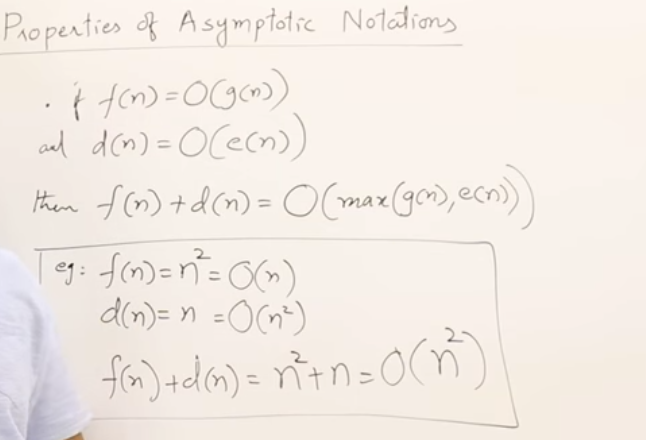 Properties of Asymptotic Notations
. if f(n) = O(g(n))
and d(n) = O(e(n))
then f(n) + d(n) = O(max(g(n), e(n)))
eg: f(n) = n² = O(n)
d(n) = n = O(n²)
f(n) + d(n) = n² + n = O(n²)